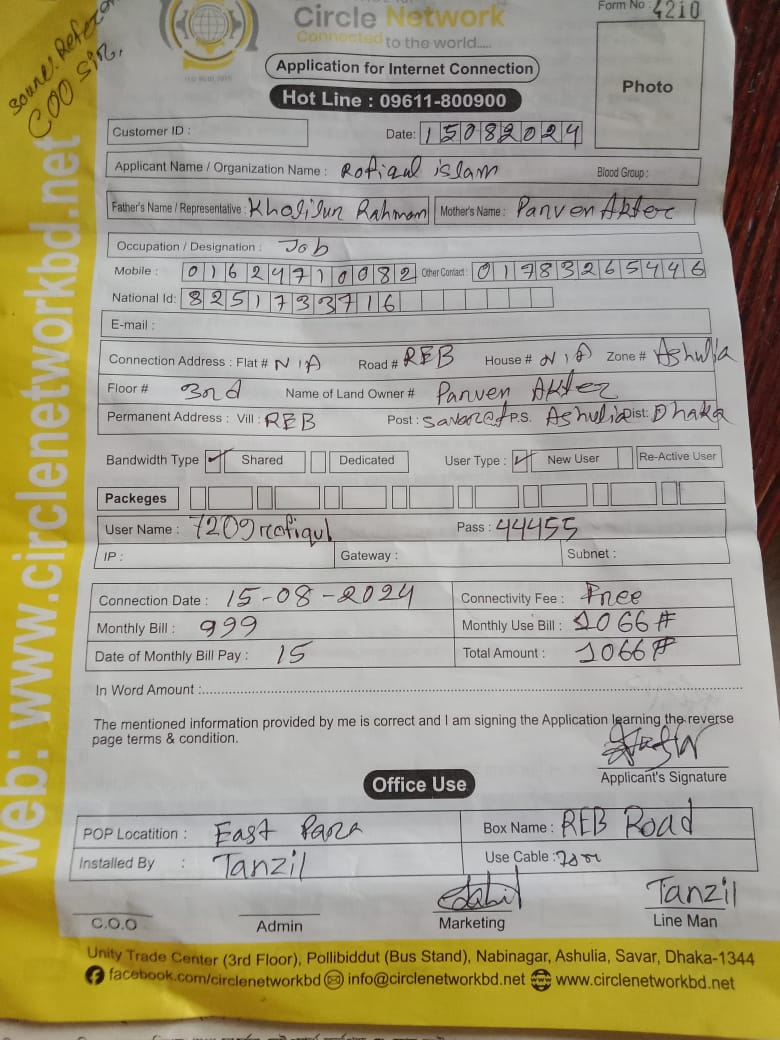 Form No : 4210
Circle Network
Connected to the world.....
Sourse: Refere
COO Sir.
Application for Internet Connection
Hot Line : 09611-800900
Photo
Customer ID :
Date: 15082024
Applicant Name / Organization Name : Rofiqul islam
Blood Group :
Father's Name / Representative : Kholilur Rahman
Mother's Name : Parven Akter
Occupation / Designation : Job
Mobile : 01624710082
Other Contact : 01783265446
National Id: 8251733716
E-mail :
Connection Address : Flat # N/A Road # REB House # N/A Zone # Ashulia
Floor # 3rd Name of Land Owner # Parven Akter
Permanent Address : Vill : REB Post : P.S. Ashulia Dist: Dhaka
Bandwidth Type Shared Dedicated User Type : New User Re-Active User
Packeges
User Name : 7209rofiqul Pass : 44455
IP : Gateway : Subnet :
Connection Date : 15-08-2024 Connectivity Fee : Free
Monthly Bill : 999 Monthly Use Bill : 1066#
Date of Monthly Bill Pay : 15 Total Amount : 1066#
In Word Amount :
The mentioned information provided by me is correct and I am signing the Application learning the reverse
page terms & condition.
Applicant's Signature
Office Use
POP Locatition : East Para Box Name : REB Road
Installed By : Tanzil Use Cable :
Tanzil
C.O.O Admin Marketing Line Man
Unity Trade Center (3rd Floor), Pollibiddut (Bus Stand), Nabinagar, Ashulia, Savar, Dhaka-1344
facebook.com/circlenetworkbd info@circlenetworkbd.net www.circlenetworkbd.net
web: www.circlenetworkbd.net